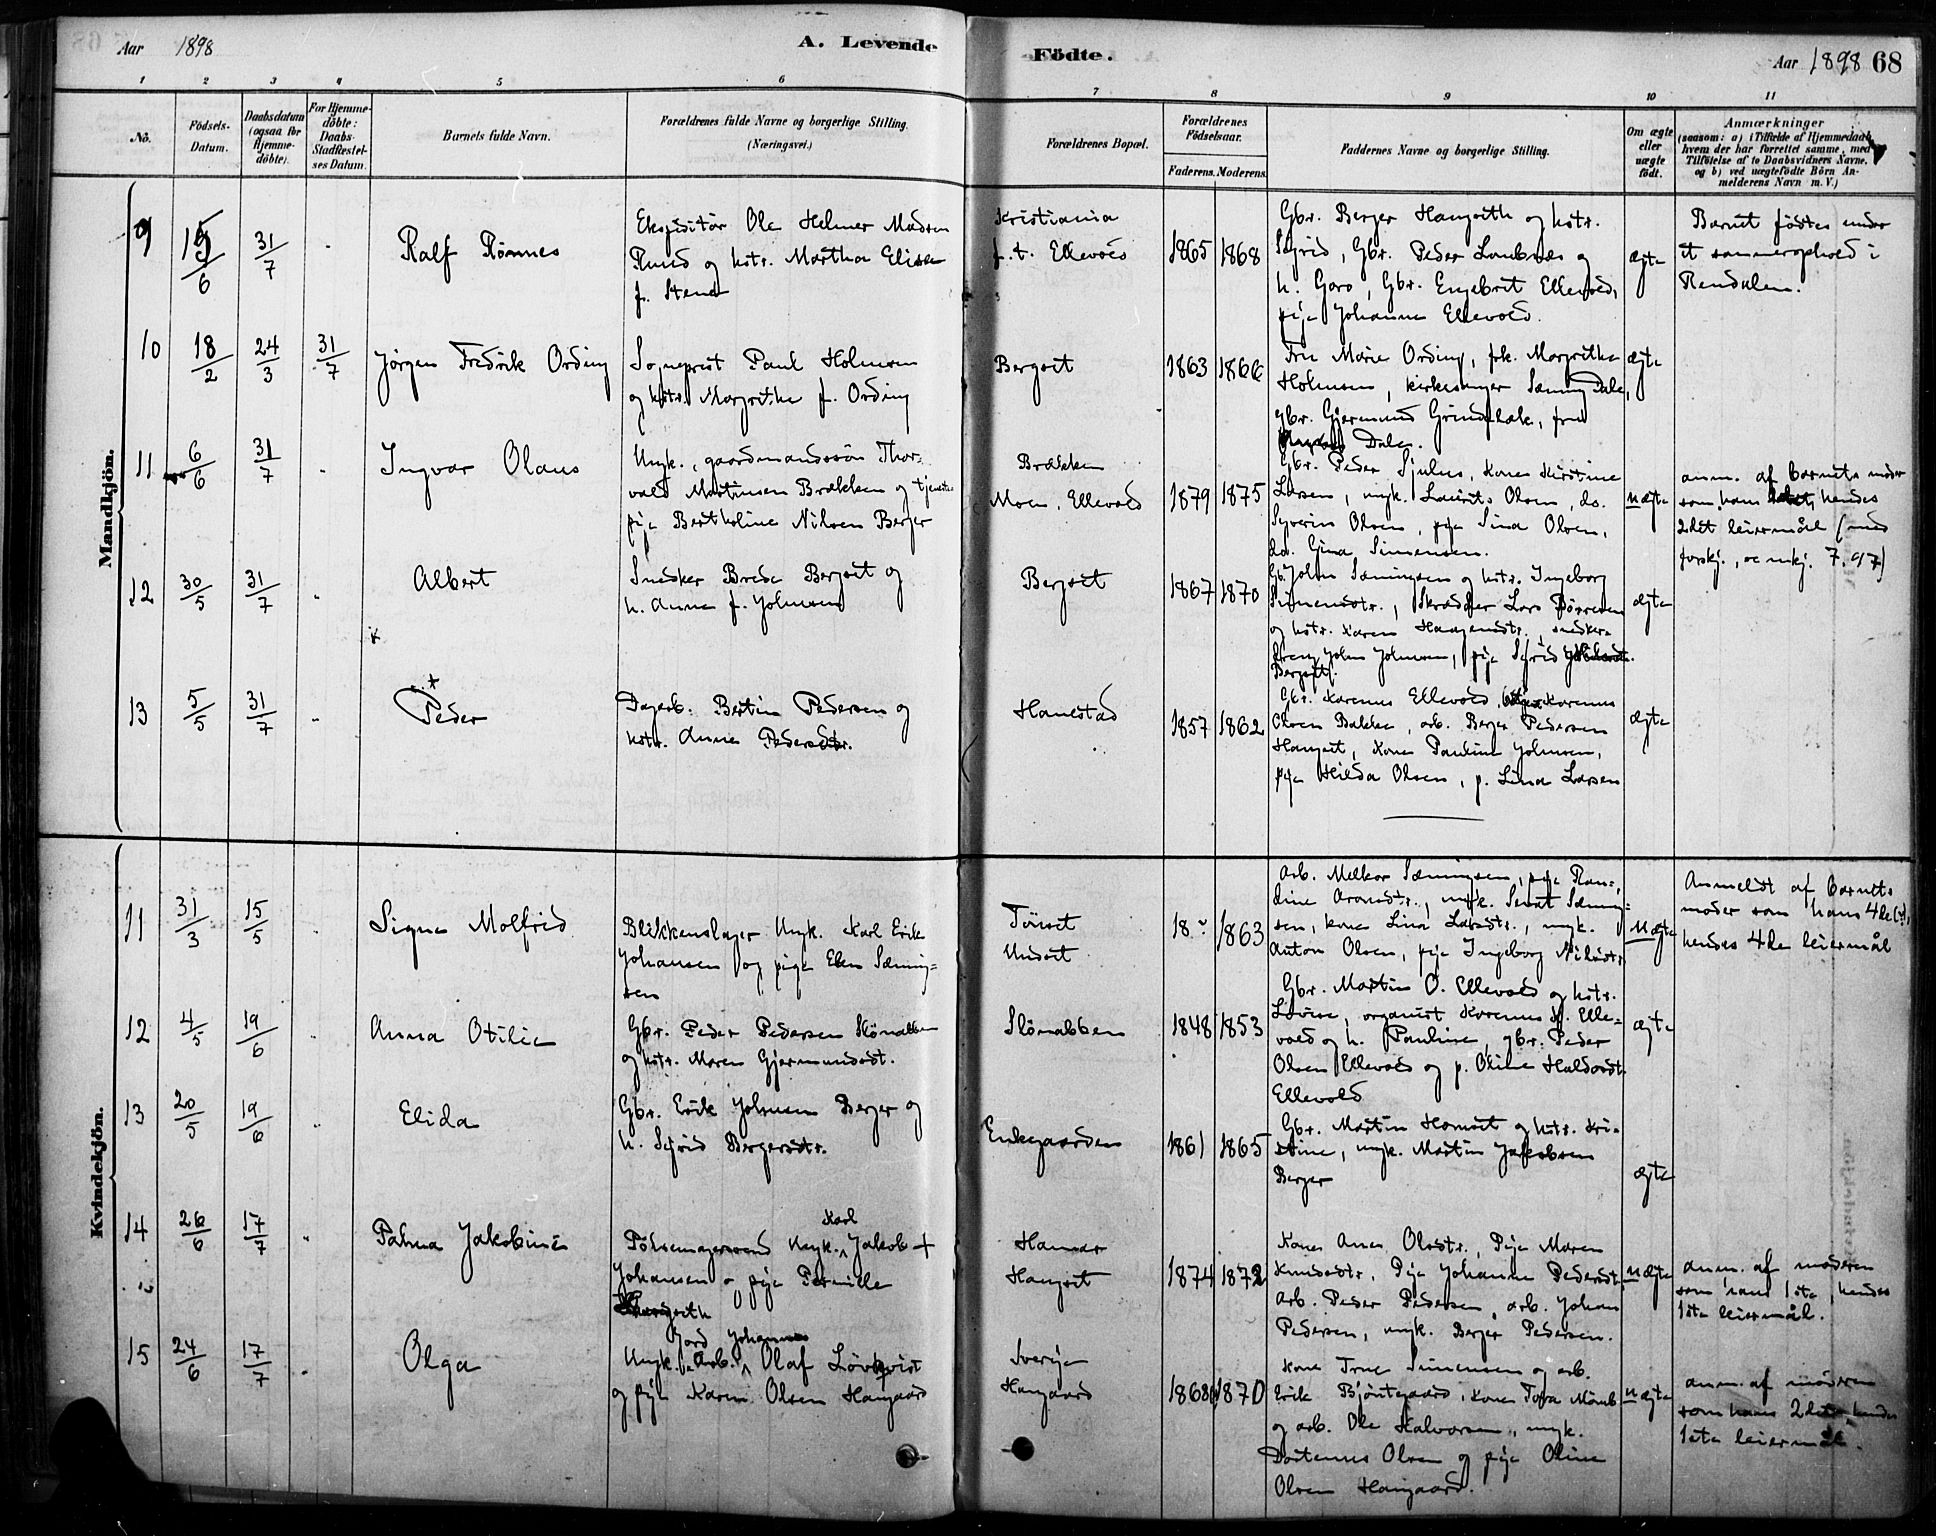 Aar 1898
A. Levende
Födte.
Aar 1898 68
1 2 3 4 5 6 7 8 9 10 11
Nô.
Födsels-
Datum.
Daabsdatum
(ogsaa for
Hjemme-
döbte).
For Hjemme-
döbte:
Daabs-
Stadfæstel-
ses Datum.
Barnets fulde Navn.
Forældrenes fulde Navne og borgerlige Stilling.
(Næringsvei.)
Forældrenes Bopæl.
Forældrenes
Födselsaar.
Faderens. Moderens.
Faddernes Navne og borgerlige Stilling.
Om ægte
eller
uægte
födt.
Anmærkninger
(saasom: a) i Tilfælde af Hjemmedaab,
hvem der har forrettet samme, med
Tilföielse af to Daabsvidners Navne,
og b) ved uægtefödte Börn An-
melderens Navn m. V.)
Mandkjön.
9 15/6 31/7 Ralf Rönnes
Ekspeditör Ole Helmer Madsen
Ruud og hstr. Martha Elise
f. Stene
Kristiania
f. t. Ellevold
1865 1868
Gbr. Berger Hangseth og hstr.
Sigrid, Gbr. Peder Lombnæs og
h. Goro, Gbr. Engebret Ellevold,
pige Johanna Ellevold.
ægte
Barnet födtes under
et sommerophold i
Rendalen.
10 18/2 24/3 31/7 Jörgen Fredrik Ording
Sogneprest Paul Holmsen
og hstr. Margrethe f. Ording
Bergset
1863 1866
Fru Marie Ording, frk. Margrethe
Holmsen, kirkesanger Sæming Dale,
gbr. Gjermund Grindflæk, fru
Dale.
ægte
11 6/6 31/7 Ingvar Olaus
Ungk., gaardmandssön Thor-
vald Martinsen Brækken og tjeneste-
pige Bertholine Nilsen Berger
Brækken
Moen, Ellevold
1879 1875
Gbr. Peder Sjulus, Kone Kirstine
Larsen, ungk. Laurits Olsen, do.
Syverin Olsen, pige Sina Olsen,
do. Gina Simensen.
uægte
anm. af barnets moder
som hans hendes
2det leiermål (med
forskj., se mkj. 7. 97)
12 30/5 31/7 Albert
Snedker Brede Bergset og
h. Anne f. Johnsen
Bergset
1867 1870
Gb. John Sæmingsen og hstr. Ingeborg
Simensdtr., Skrædder Lars Börresen
og hstr. Karen Haagensdtr., snedker-
svend John Johnsen, pige Sigrid
Bergset.
ægte
13 5/5 31/7 Peder
Dagarb. Bertin Pedersen og
hstr. Anne Pedersdtr.
Hanestad
1857 1862
Gbr. Karenus Ellevold, Karenus
Olsen Bakke, arb. Berger Pedersen
Hangset, Kone Pauline Johnsen,
pige Hilda Olsen, p. Lina Larsen
ægte
Kvindekjön.
11 31/3 15/5 Signe Molfrid
Blikkenslager Ungk. Karl Erik
Johansen og pige Elen Sæming-
sen
Tönset
Undset
18 1863
Arb. Melkor Sæmingsen, pige Ran-
dine Aronsdtr., ungk. Sæming-
sen, kone Lina Larsdtr., ungk.
Anton Olsen, pige Ingeborg Nilsdtr.
Uægte
Anmeldt af barnets
moder som hans 4de(?),
hendes 4de leiermål
12 4/5 19/6 Anna Otilie
Gbr. Peder Pedersen Slönabben
og hstr. Maren Gjermundsdt.
Slönabben
1848 1853
Gbr. Martin O. Ellevold og hstr.
Lovise, organist Karenus Elle-
vold og h. Pauline, gbr. Peder
Olsen Ellevold og p. Oline Haldorsdt.
Ellevold
ægte
13 20/5 19/6 Elida
Gbr. Erik Johnsen Berger og
h. Sigrid Bergersdtr.
Enkegaarden
1861 1865
Gbr. Martin Homset og hstr. Kri-
stine, ungk. Martin Jakobsen
Berger
ægte
14 26/6 17/7 Palma Jakobine
Karl
Pölsemagersvend Ungk. Jakob
Johansen og pige Pernille
Hangseth
Hamar
Hangset
1874 1872
Kone Anne Olsdtr., Pige Maren
Knudsdtr., Pige Johanne Pedersdt.
arb. Peder Pedersen, arb. Johan
Pedersen, ungk. Berger Pedersen.
uægte
anm. af moderen
som hans 1ste, hendes
1ste leiermål.
15 24/6 17/7 Olga
Jord Johannes
Ungk. Arb. Olaf Lövkvist
og pige Karen Olsen Haugaard
Sverige
Haugaard
1868 1870
Kone Trine Simensen og arb.
Erik Björntegaard, Kone Tora
og arb. Ole Halvorsen, ungk.
Olsen og pige Oline
Olsen Haugaard.
uægte
anm. af moderen
som hans 2det, hendes
1ste leiermål.